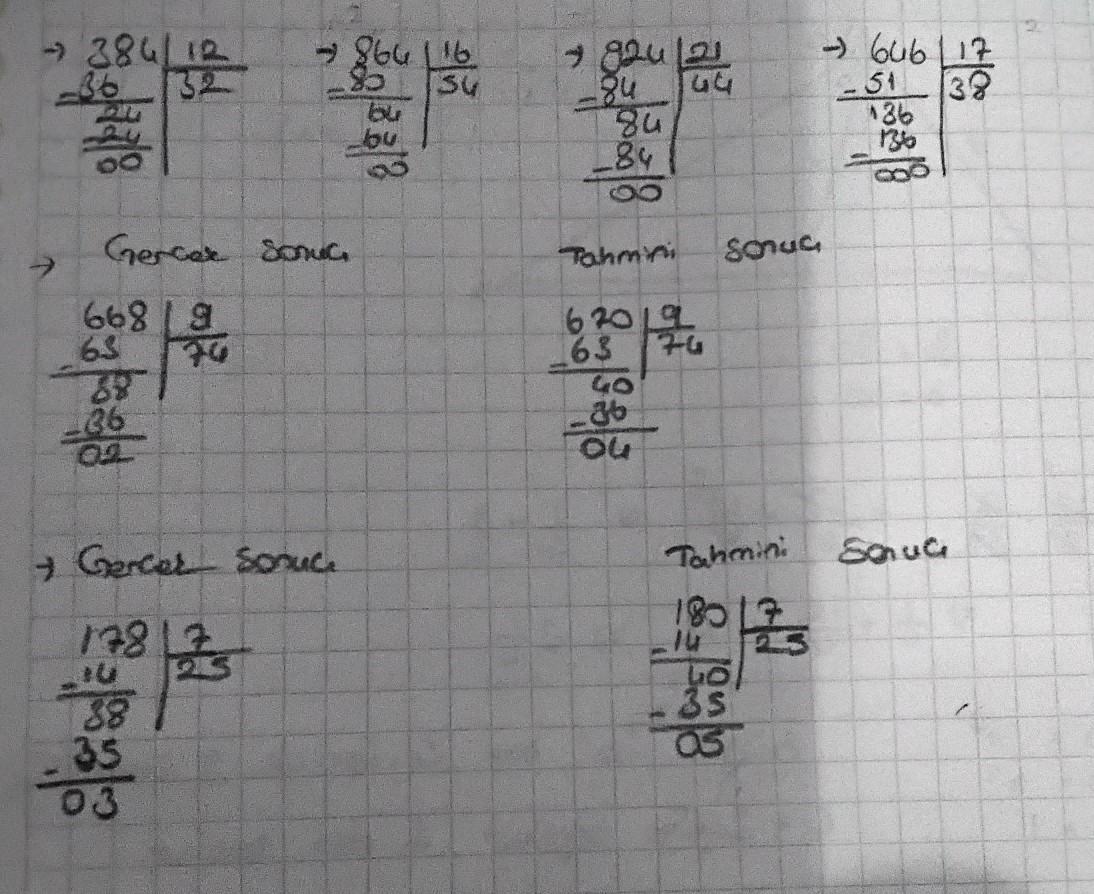 → 384 | 12 → 864 | 16 → 924 | 21 → 646 | 17
-36 | 32 -80 | 54 -84 | 44 -51 | 38
24 64 84 136
-24 -64 -84 -136
00 00 00 000
→ Gercek sonuc Tahmini sonuc
668 | 9 670 | 9
-63 | 74 -63 | 74
38 40
-36 -36
02 04
→ Gercek sonuc Tahmini sonuc
178 | 7 180 | 7
-14 | 25 -14 | 25
38 40
-35 -35
03 05